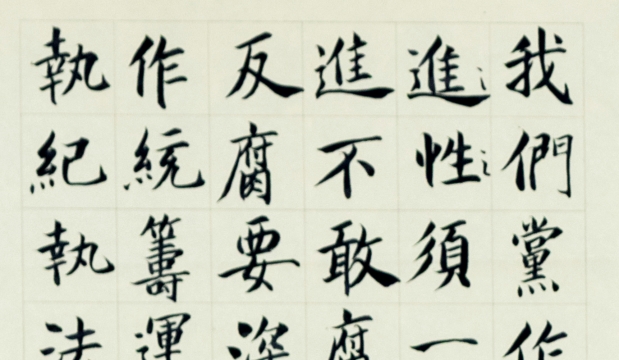 我們黨作
進性須一
進不敢腐
反腐要深
作統籌運
執紀執法